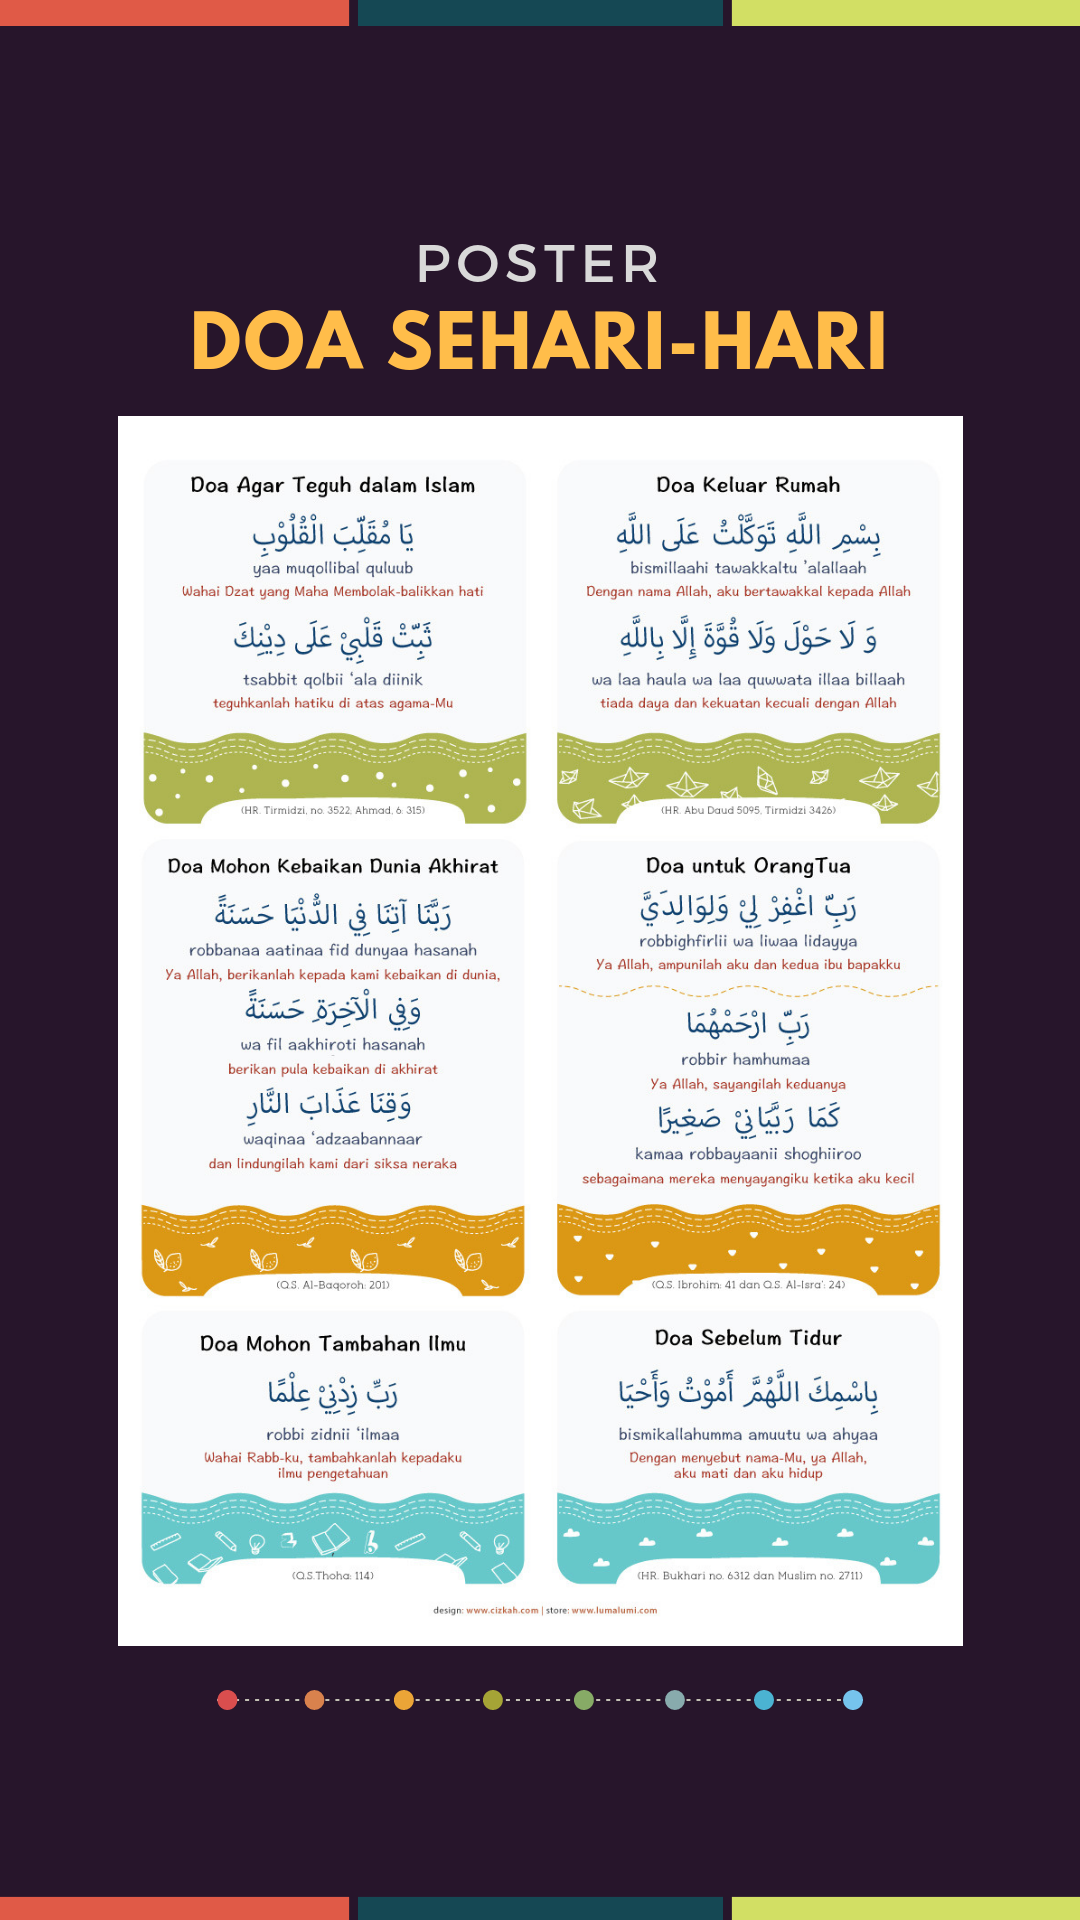 POSTER
DOA SEHARI-HARI
Doa Agar Teguh dalam Islam
يَا مُقَلِّبَ الْقُلُوْبِ
yaa muqollibal quluub
Wahai Dzat yang Maha Membolak-balikkan hati
ثَبِّتْ قَلْبِيْ عَلَى دِيْنِكَ
tsabbit qolbii ‘ala diinik
teguhkanlah hatiku di atas agama-Mu
(HR. Tirmidzi, no. 3522, Ahmad, 6: 315)
Doa Keluar Rumah
بِسْمِ اللَّهِ تَوَكَّلْتُ عَلَى اللَّهِ
bismillaahi tawakkaltu ’alallaah
Dengan nama Allah, aku bertawakkal kepada Allah
وَ لَا حَوْلَ وَلَا قُوَّةَ إِلَّا بِاللَّهِ
wa laa haula wa laa quwwata illaa billaah
tiada daya dan kekuatan kecuali dengan Allah
(HR. Abu Daud 5095, Tirmidzi 3426)
Doa Mohon Kebaikan Dunia Akhirat
رَبَّنَا آتِنَا فِي الدُّنْيَا حَسَنَةً
robbanaa aatinaa fid dunyaa hasanah
Ya Allah, berikanlah kepada kami kebaikan di dunia,
وَفِي الْآخِرَةِ حَسَنَةً
wa fil aakhiroti hasanah
berikan pula kebaikan di akhirat
وَقِنَا عَذَابَ النَّارِ
waqinaa ‘adzaabannaar
dan lindungilah kami dari siksa neraka
(Q.S. Al-Baqoroh: 201)
Doa untuk OrangTua
رَبِّ اغْفِرْ لِيْ وَلِوَالِدَيَّ
robbighfirlii wa liwaa lidayya
Ya Allah, ampunilah aku dan kedua ibu bapakku
رَبِّ ارْحَمْهُمَا
robbir hamhumaa
Ya Allah, sayangilah keduanya
كَمَا رَبَّيَانِيْ صَغِيرًا
kamaa robbayaanii shoghiiroo
sebagaimana mereka menyayangiku ketika aku kecil
(Q.S. Ibrohim: 41 dan Q.S. Al-Isra': 24)
Doa Mohon Tambahan Ilmu
رَبِّ زِدْنِيْ عِلْمًا
robbi zidnii ‘ilmaa
Wahai Rabb-ku, tambahkanlah kepadaku
ilmu pengetahuan
(Q.S.Thoha: 114)
Doa Sebelum Tidur
بِاسْمِكَ اللَّهُمَّ أَمُوْتُ وَأَحْيَا
bismikallahumma amuutu wa ahyaa
Dengan menyebut nama-Mu, ya Allah,
aku mati dan aku hidup
(HR. Bukhari no. 6312 dan Muslim no. 2711)
design: www.cizkah.com | store: www.lumalumi.com